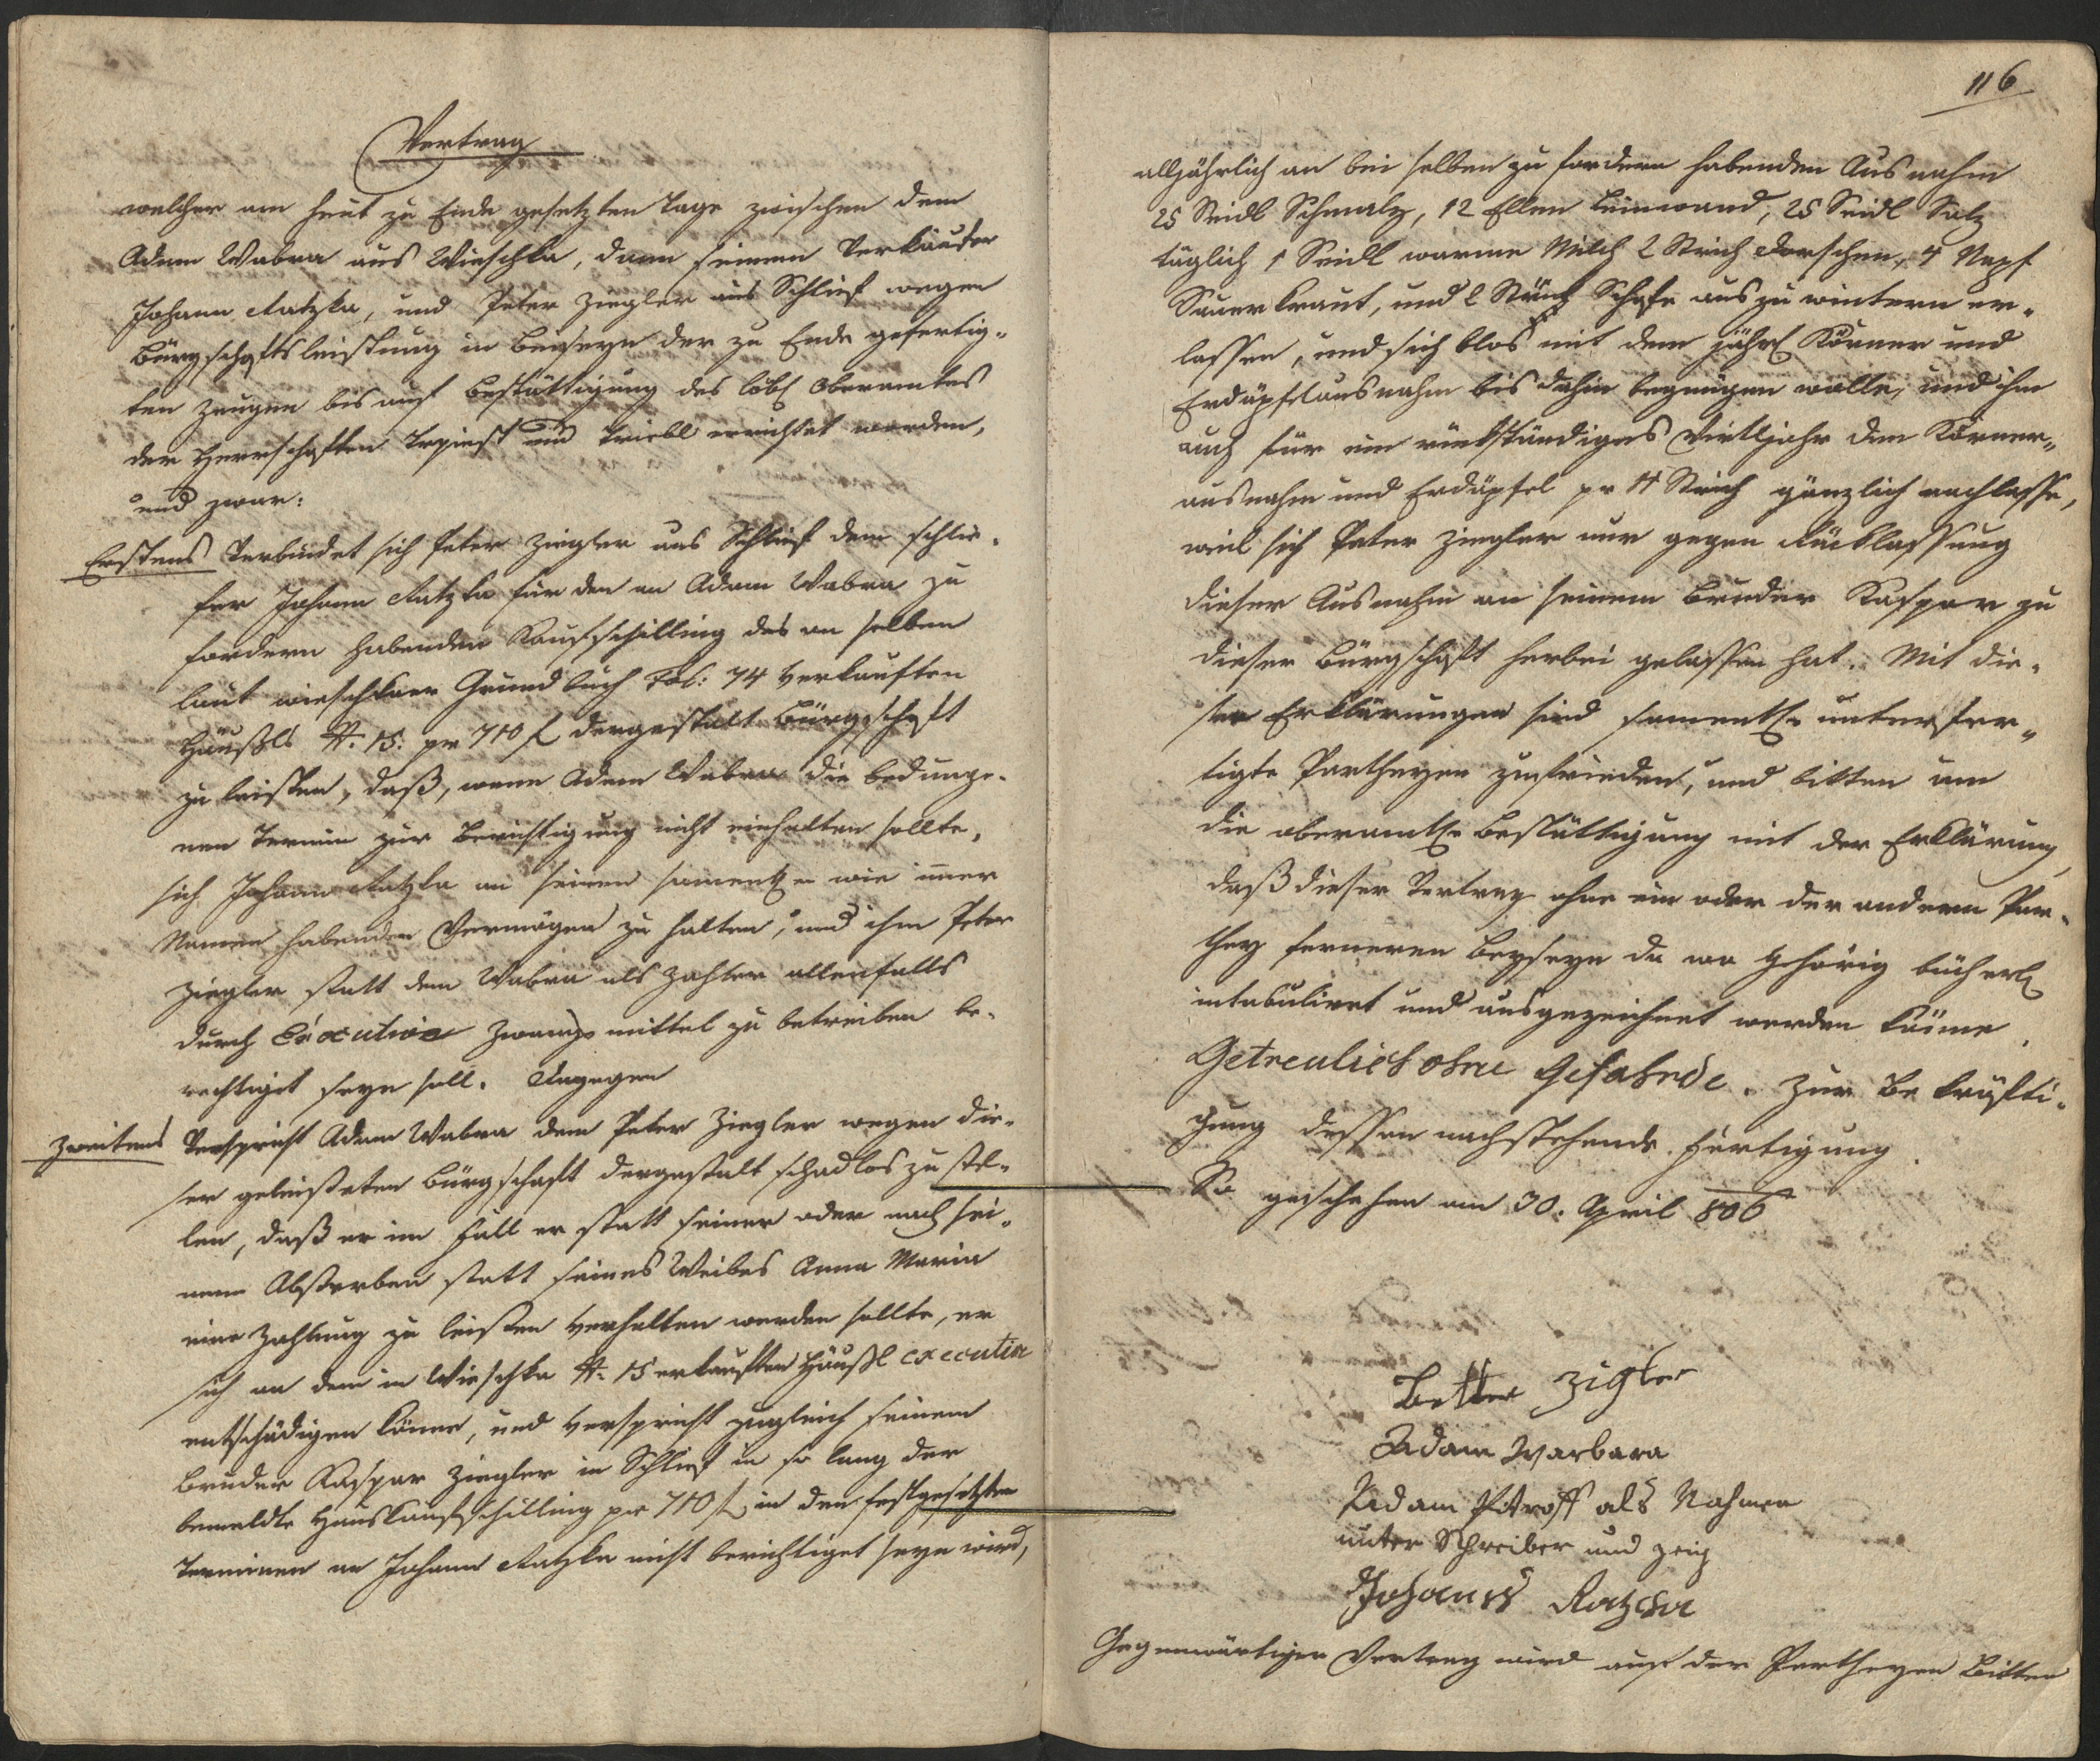 Vertrag
welcher am heut zu Ende gesetzten Tage zwischen dem
Adam Wabra aus Wieschka, dann seinem Verkäufer
Johann Ratzka, und Peter Ziegler aus Schlief wegen
Bürgschaftsleistung in Beiseyn der zu Ende gefertig-
ten Zeugen bis auf Bestättigung des löbl Oberamtes
der Herrschaften Trpist und Triebl errichtet worden,
und zwar:
Erstens Verbindet sich Peter Ziegler aus Schlief dem
fer Johann Ratzka für den an Adam Wabra zu
fordern habenden Kaufschilling des an selben
laut wieschkaer Grundbuch Fol: 74 verkauften
Häußls N: 15: pr 710 f dergestalt Bürgschaft
zu leisten, daß, wenn Adam Wabra die bedunge-
nen Termin zur Berichtigung nicht einhalten sollte,
sich Johann Ratzka an seinen samentl. wie immer
Namen habenden Vermögen zu halten, und ihm Peter
Ziegler statt dem Wabra als Zahler allenfalls
durch Executive Zwangsmittel zu betreiben be-
rechtiget seyn soll. Dagegen
Zweitens Verspricht Adam Wabra dem Peter Ziegler wegen die-
ser geleisteten Bürgschaft dergestalt schadlos zu stel-
len, daß er im Fall er statt seiner oder nach sei-
nem Absterben statt seines Weibes Anna Maria
eine Zahlung zu leisten verhalten werden sollte, er
sich an dem in Wieschka N: 15 erkauften Häußl executive
entschädigen könne, und verspricht zugleich seinem
Bruder Kaspar Ziegler in Schlief in so lang der
bemeldte Hauskaufschilling pr 710 f in den festgesetzten
Terminen an Johann Ratzka nicht berichtiget seyn wird,
116
alljährlich an bei selben zu fordern habenden Ausnahm
25 Seidl Schmalz, 12 Ellen Leinwand, 25 Seidl Salz
täglich 1 Seidl warme Milch 2 Strich Dorschen, 4 Napf
Sauerkraut, und 2 Stück Schafe aus zu wintern er-
lassen, und sich blos mit dem jährl Körner und
Erdäpfelausnahm bis dahin begnügen wolle, und ihm
auch für ein rückständiges Viertljahr den Körner-
ausnahm und Erdäpfel pr 4 Strich gänzlich nachlasse,
weil sich Peter Ziegler nur gegen Rücklassung
dieser Ausnahm an seinem Bruder Kaspar zu
dieser Bürgschaft herbei gelassen hat. Mit die-
ser Erklärungen sind samentl. unterfer-
tigte Partheyen zufrieden, und bitten um
die oberamtl. Bestättigung mit der Erklärung,
daß dieser Vertrag ohne ein oder der andern Par-
they ferneren Beyseyn da wo gehörig bücherl
intabulirt und ausgezeichnet werden könne.
Getreulich ohne Gefahrde. Zur Bekräfti-
gung dessen nachstehende Fertigung.
So geschehen am 30. April 806
Better Zigler
Adam Warbara
Adam Pitroff als Nahmen
unter Schreiber und zeig
Johann Ratzka
Gegenwärtiger Vertrag wird auf der Partheyen Bitten